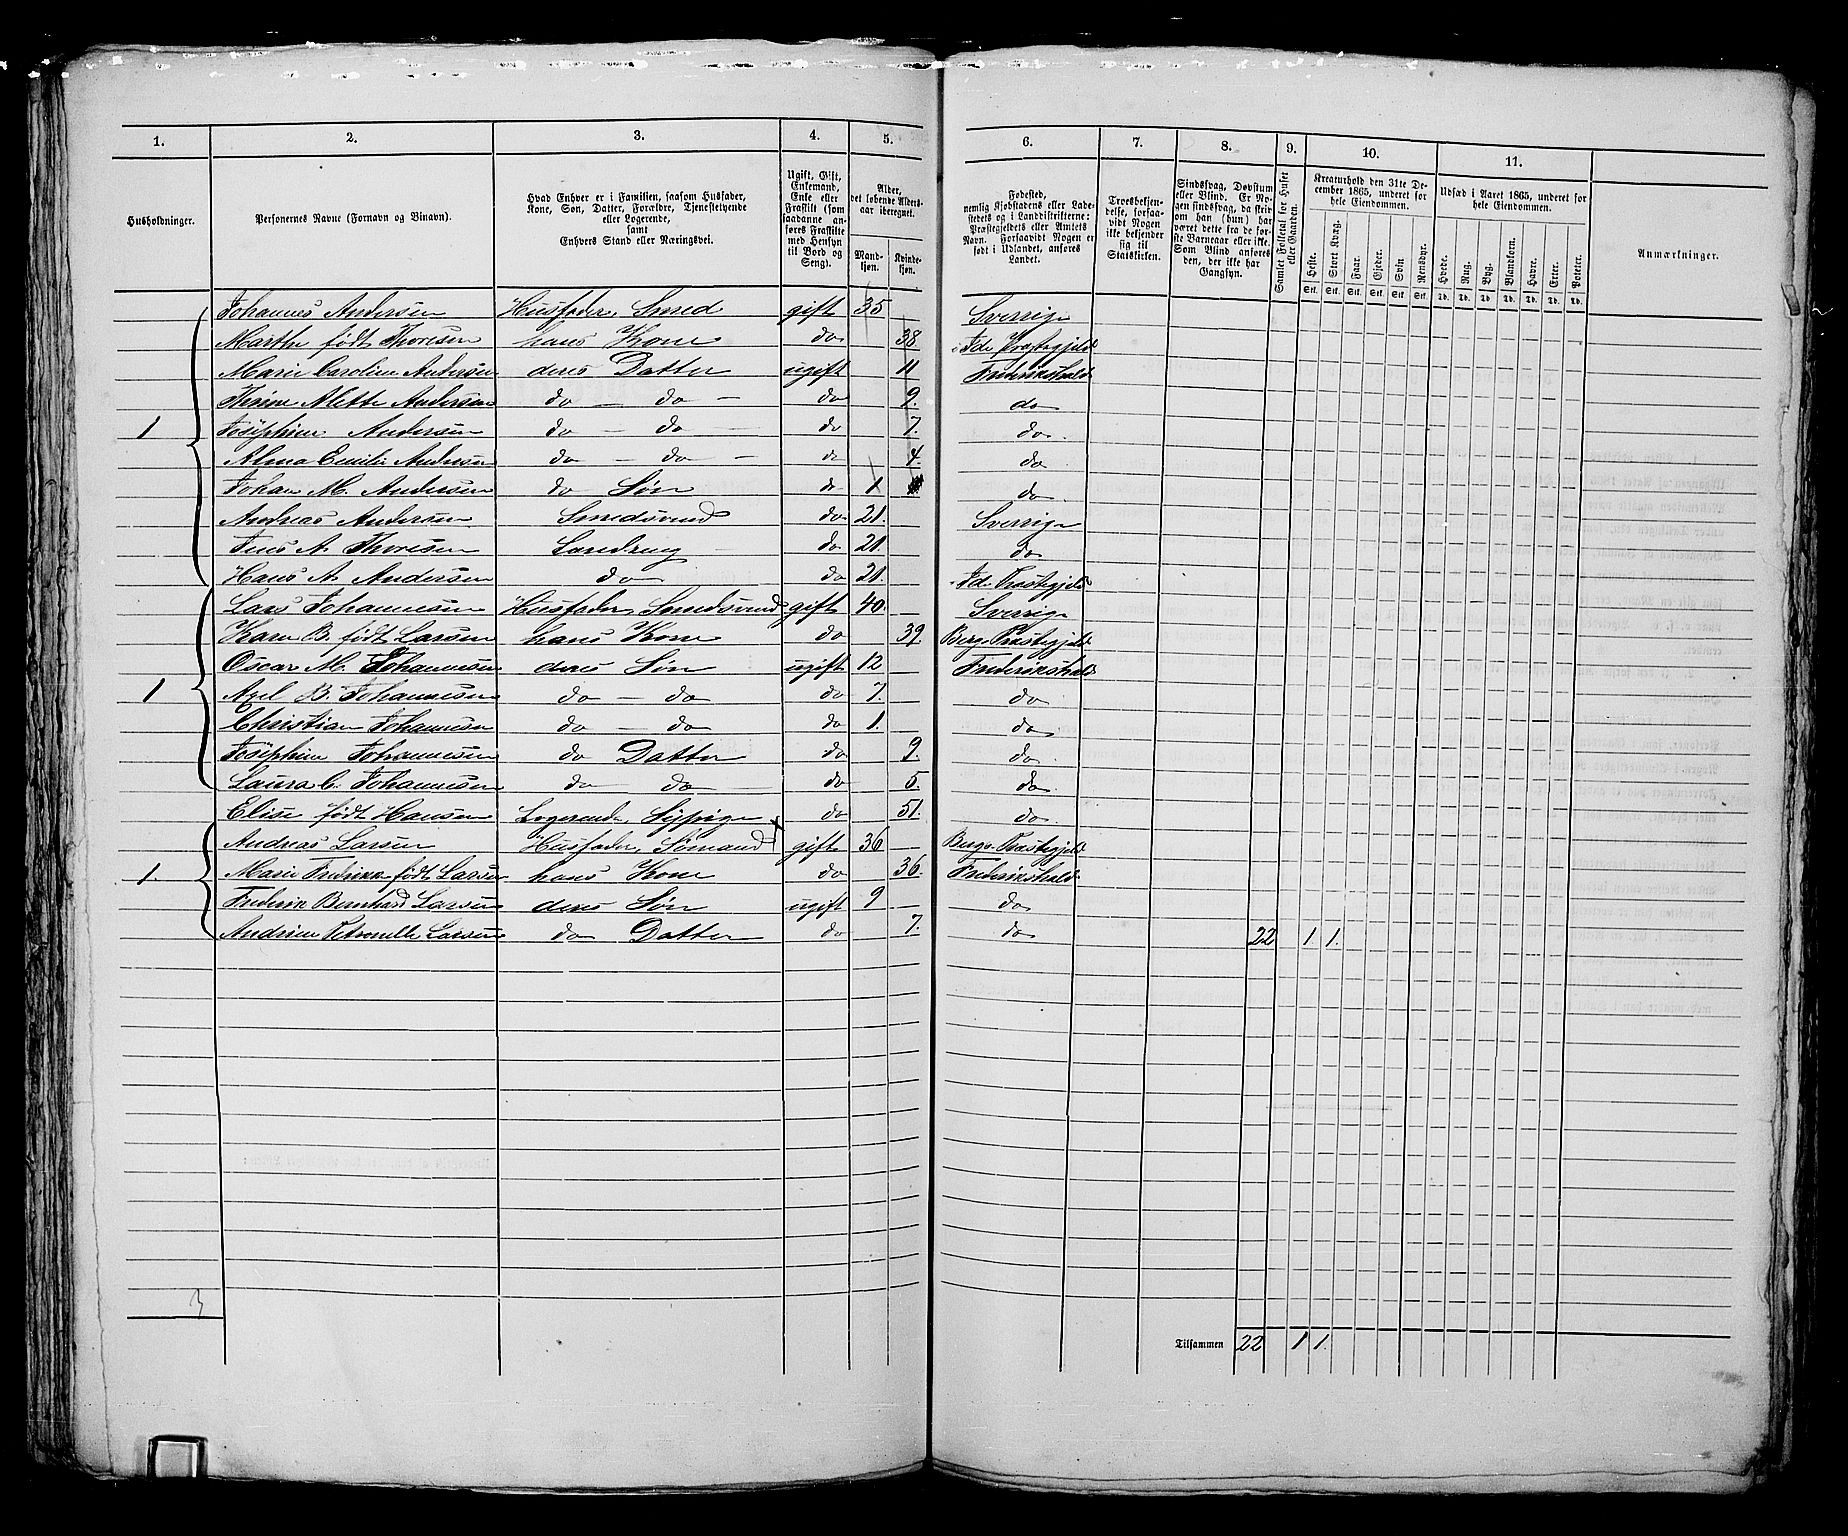 1. 2. 3. 4. 5. 6. 7. 8. 9. 10. 11.
Husholdninger.
Personernes Navne (Fornavn og Binavn).
Hvad Enhver er i Familien, saasom Husfader,
Kone, Søn, Datter, Forældre, Tjenestetyende
eller Logerende,
samt
Enhvers Stand eller Næringsvei.
Ugift, Gift,
Enkemand,
Enke eller
Fraskilt (som
saadanne an-
føres Fraskilte
med Hensyn
til Bord og
Seng).
Alder,
det løbende Alders-
aar iberegnet.
Mand-
kjøn.
Kvinde-
kjøn.
Fødested,
nemlig Kjøbstadens eller Lade-
stedets og i Landdistrikterne:
Præstegjeldets eller Amtets
Navn. Forsaavidt Nogen er
født i Udlandet, anføres
Landet.
Troesbekjen-
delse, forsaa-
vidt Nogen
ikke bekjender
sig til
Statskirken.
Sindssvag, Døvstum
eller Blind. Er No-
gen sindssvag, da skriv
om han (hun) har
været dette fra de før-
ste Barneaar eller ikke.
Som Blind anføres
den, der ikke har
Gangsyn.
Samlet Folketal for Huset
eller Gaarden.
Kreaturhold den 31te De-
cember 1865, underet for
hele Eiendommen.
Heste. Stort Kvæg. Faar. Gjeder. Svin Rensdyr.
Stk. Stk. Stk. Stk. Stk. Stk.
Udsæd i Aaret 1865, underet for
hele Eiendommen.
Hvede. Rug. Byg. Blandkorn. Havre. Erter. Poteter.
Td. Td. Td. Td. Td. Td. Td.
Anmærkninger.
Johannes Andersen Husfader, Smed gift 35 Sverrige
Marthe født Thoresen hans Kone do 38 Ide Præstegjeld
Marie Caroline Andersen deres Datter ugift 11 Frederikshald
Thrine Mette Andersen do — do — do 9. do
1 Josephine Andersen do — do — do 7. do
Alma Emilie Andersen do — do — do 4. do
Johan M. Andersen do Søn do 1 do
Andreas Andersen Smedsvend do 21. Sverrige
Jens A. Thoresen do 21. do
Hans A. Andersen do do 21. Ide Præstegjeld
Lars Johannesen Husfader, Smedsvend gift 40. Sverrige
Karen B. født Larsen hans Kone do 39 Bergs Præstegjeld
Oscar M. Johannesen deres Søn ugift 12 Frederikshald
1 Axel B. Johannesen do — do do 7. do
Christian Johannesen do — do do 1. do
Josephine Johannesen do Datter do 9. do
Laura C. Johannesen do do do 5. do
Elise født Hansen Logerende, Sypige do 51. do
Andreas Larsen Husfader, Sømand gift 36 Bergs Præstegjeld
1. Marie Fredrikke født Larsen hans Kone do 36. Frederikshald
Frederik Bernhard Larsen deres Søn ugift 9 do
Andrine Petronelle Larsen do Datter do 7. do 22 1 1.
3
Tilsammen 22 1 1.